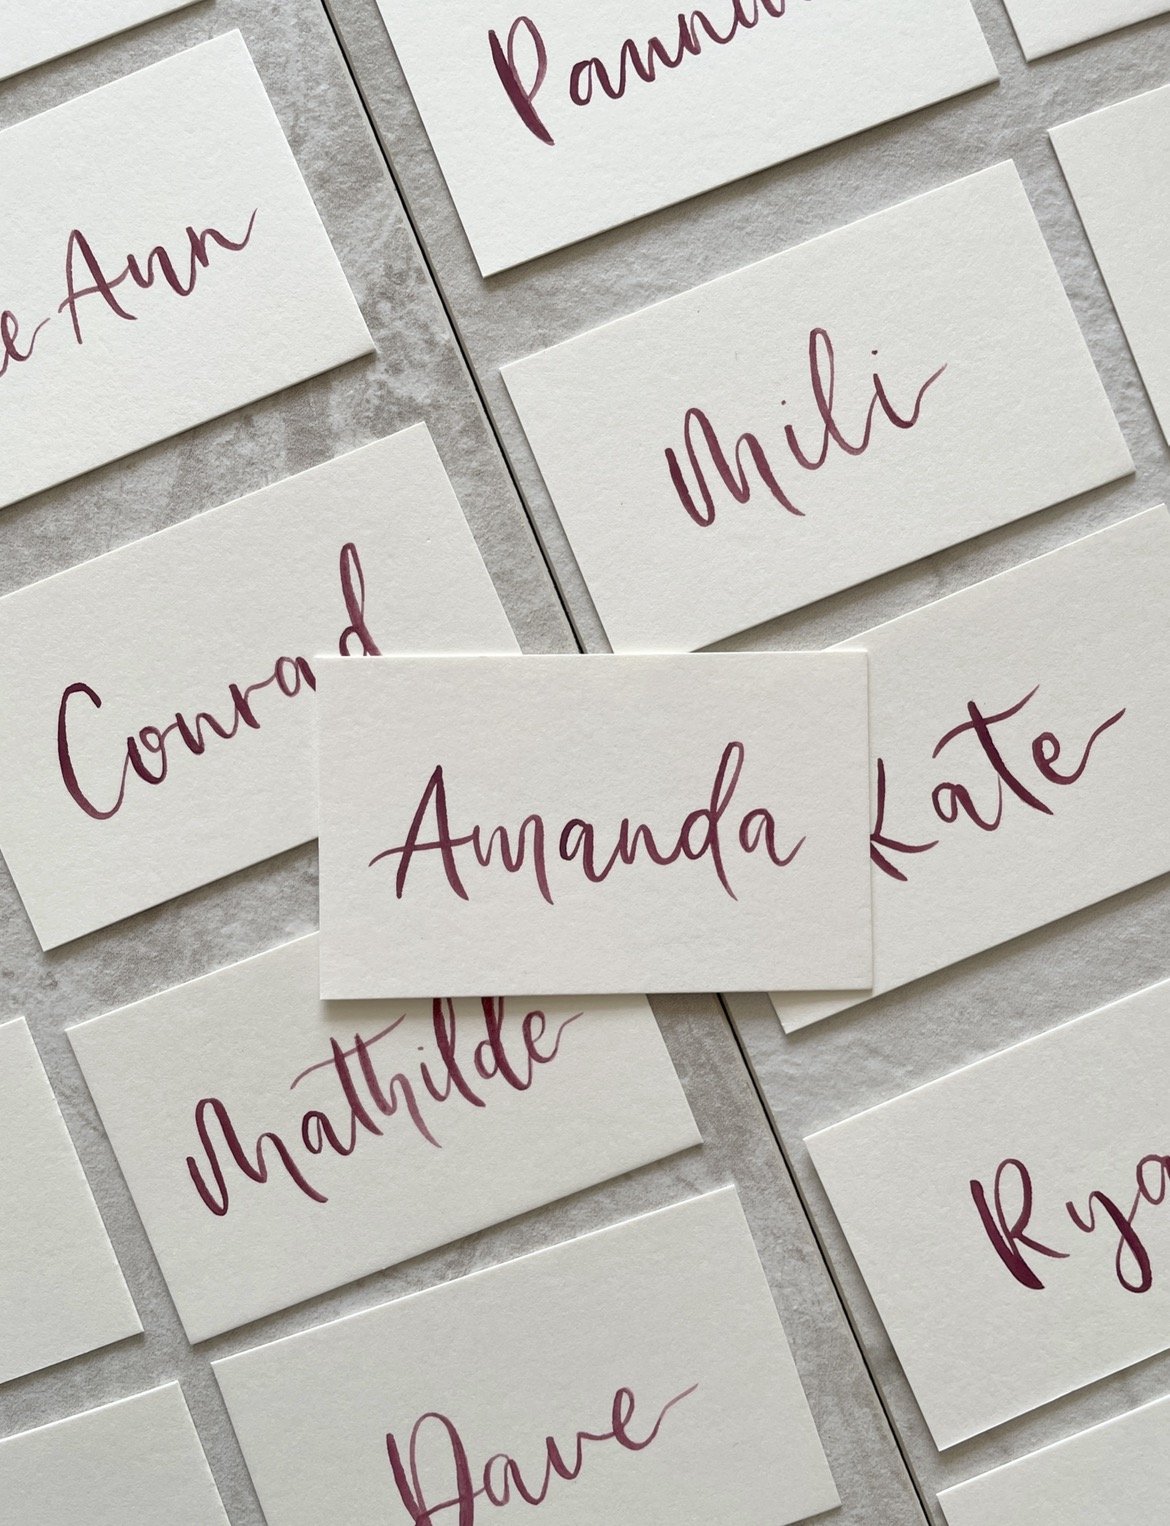 Ann
Mili
Conrad
Amanda
Kate
Mathilde
Dave